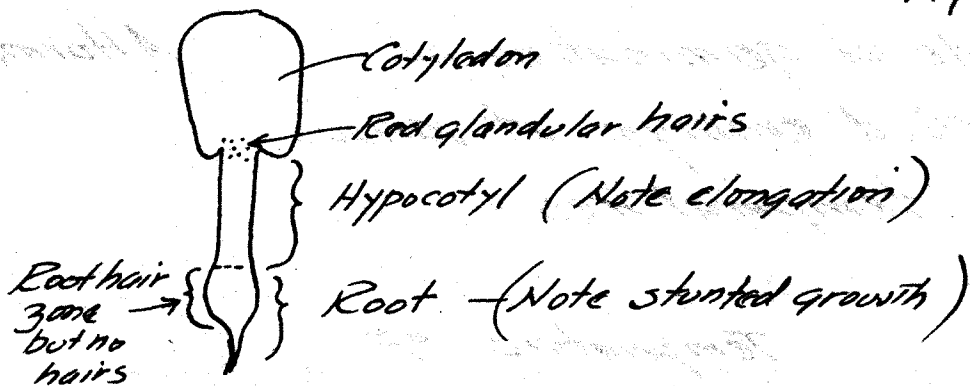 Cotyledon
Red glandular hairs
Hypocotyl (Note elongation)
Root hair
zone
but no
hairs
Root — (Note stunted growth)